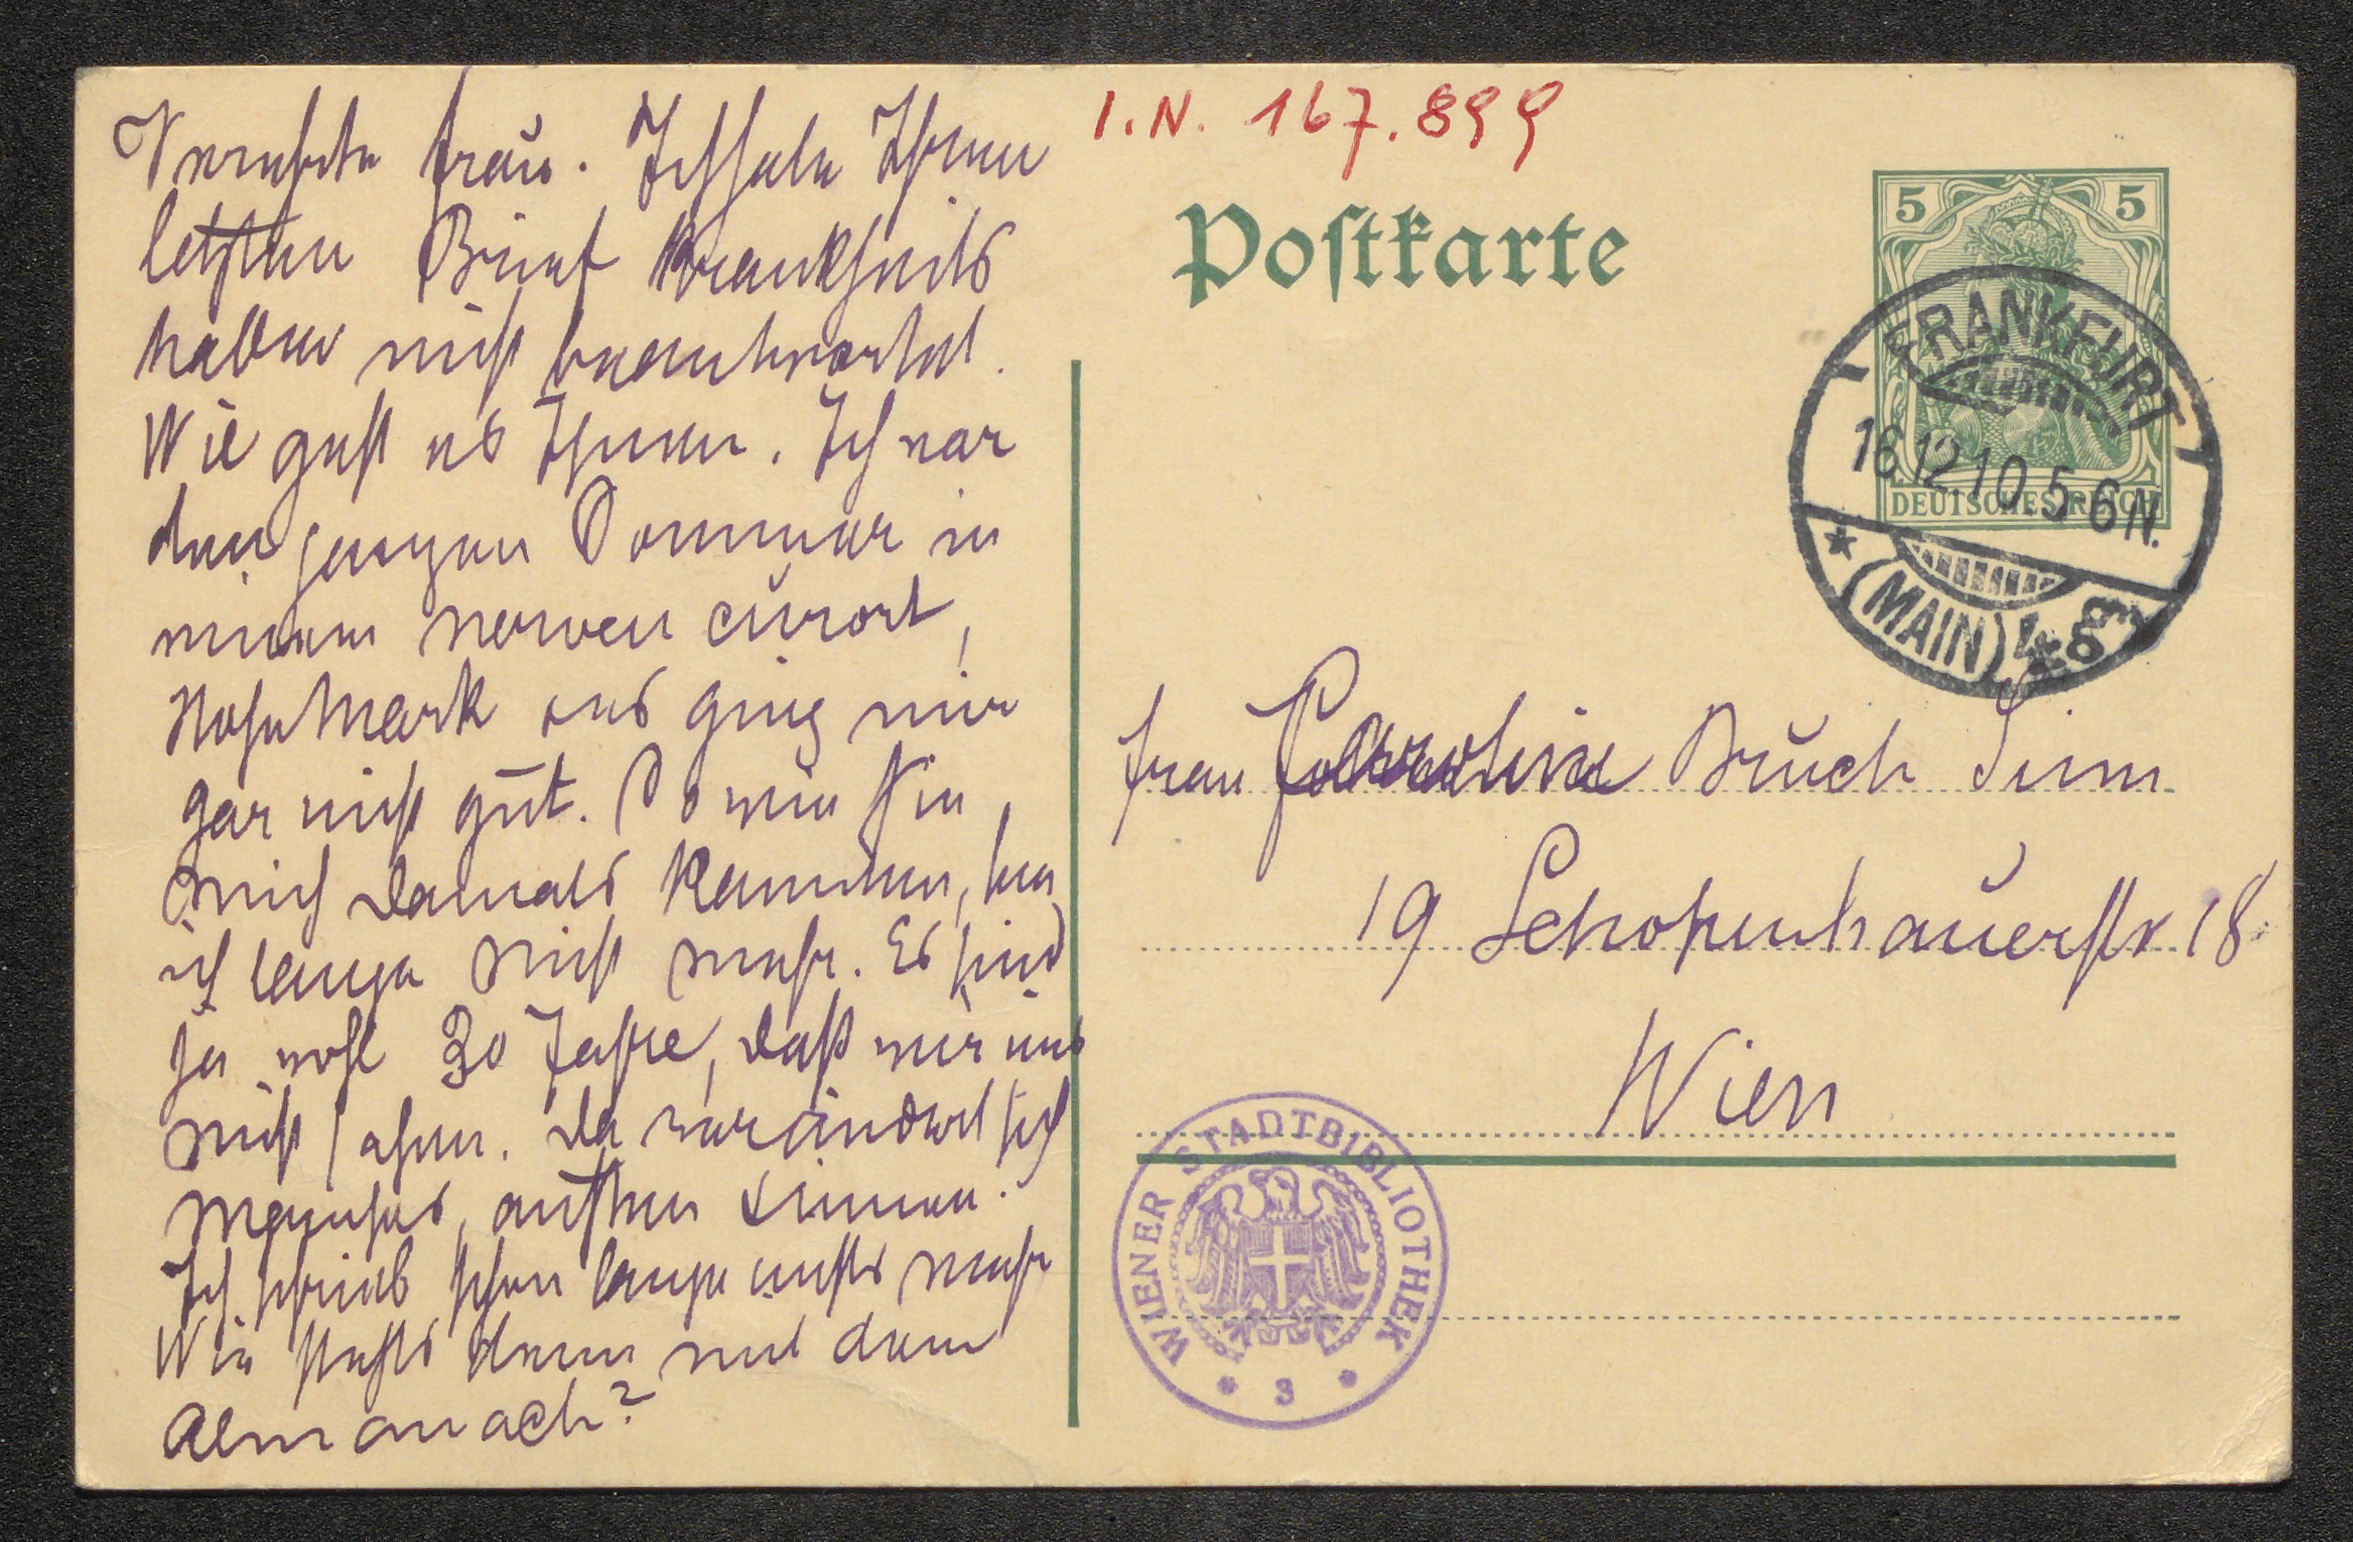 Verehrte Frau. Ich habe Ihren
letzten Brief Krankheits
halber nicht beantwortet.
Wie geht es Ihnen. Ich war
den ganzen Sommer in
einem Nerven curort,
Hohe Mark es ging mir
gar nicht gut. So wie Sie
mich damals kannten, bin
ich lange nicht mehr. Es sind
ja wohl 30 Jahre, daß wir uns
nicht sahen. Da verändert sich
Manches, außen & innen.
Ich schrieb schon lange nichts mehr
Wie stehts denn mit dem
Almanach?
I.N. 167.899
Postkarte
5 5
DEUTSCHES REICH
FRANKFURT
16.12.10.5-6N.
(MAIN)
Frau Caroline Bruch Sinn
19 Schopenhauerstr 18
Wien
WIENER STADTBIBLIOTHEK
* 3 *